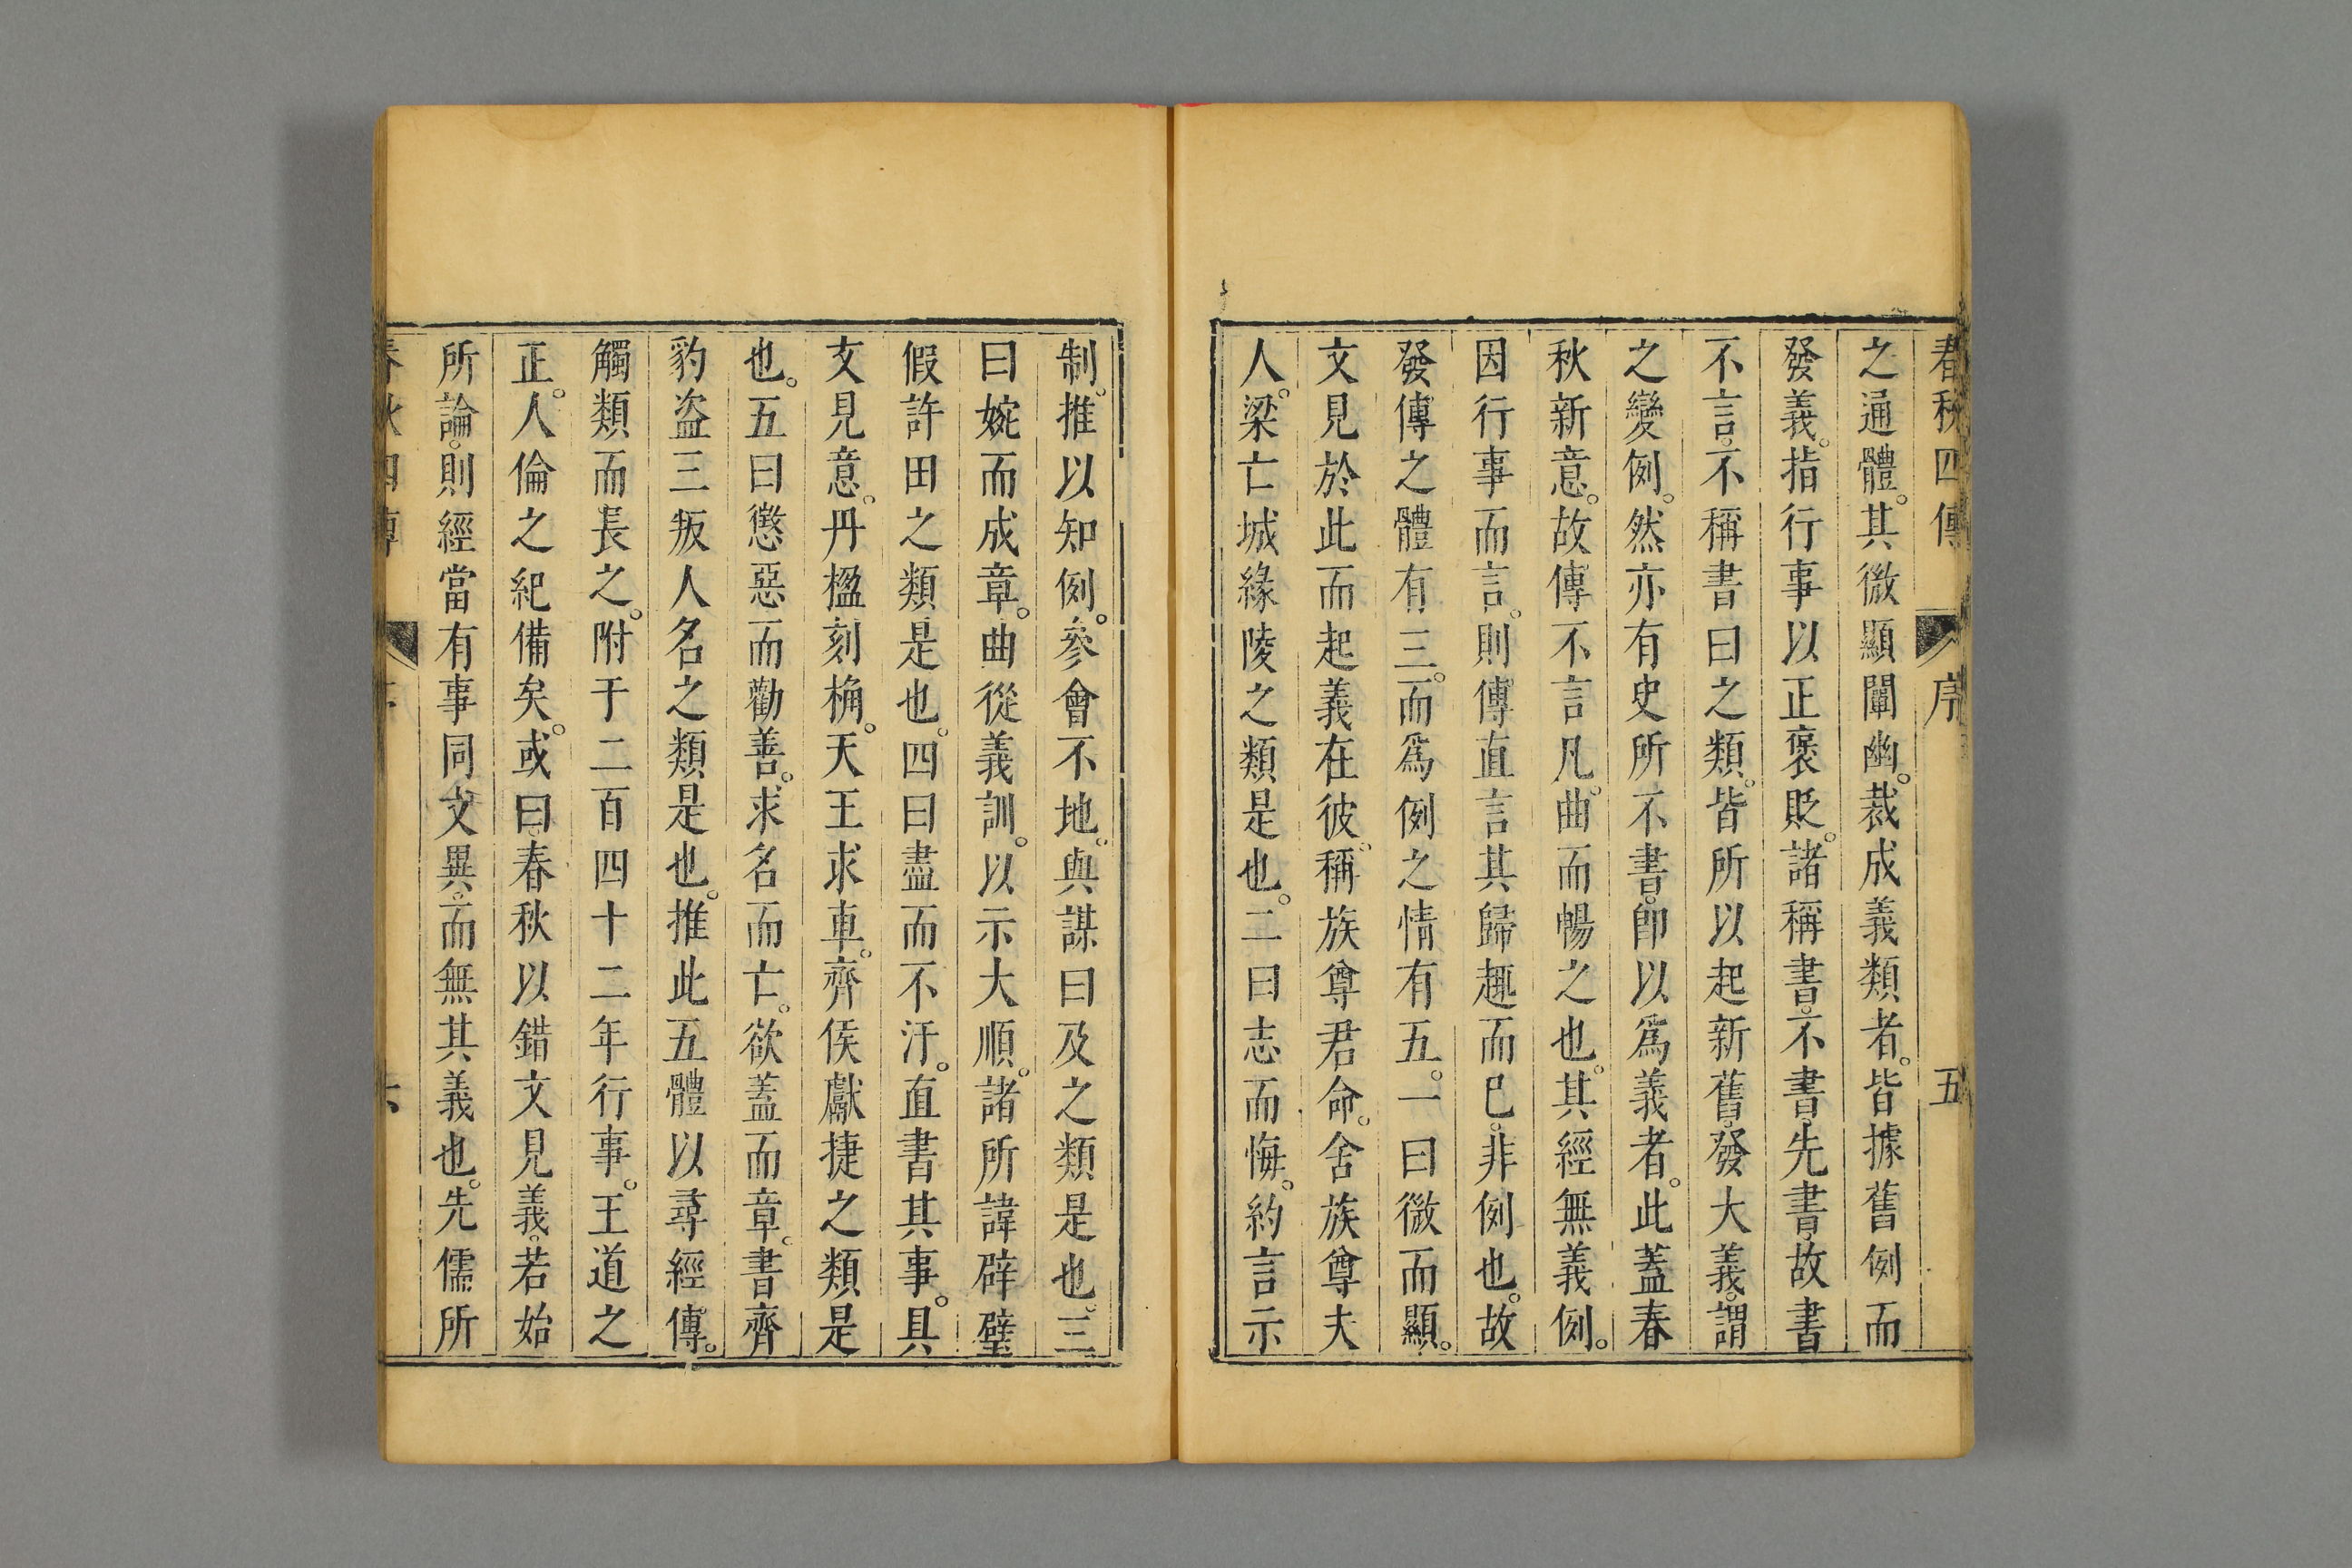 春秋四傳 序 五
之通體。其微顯闡幽。裁成義類者。皆據舊例而
發義。指行事以正褒貶。諸稱書。不書。先書。故書
不言。不稱書曰之類。皆所以起新舊。發大義。謂
之變例。然亦有史所不書。卽以爲義者。此蓋春
秋新意。故傳不言凡。曲而暢之也。其經無義例。
因行事而言。則傳直言其歸趣而已。非例也。故
發傳之體有三。而爲例之情有五。一曰微而顯。
文見於此而起義在彼。稱族尊君命。舍族尊夫
人。梁亡城緣陵之類是也。二曰志而晦。約言示
制。推以知例。參會不地。與謀曰及之類是也。三
曰婉而成章。曲從義訓。以示大順。諸所諱辟璧
假許田之類是也。四曰盡而不汙。直書其事。具
文見意。丹楹刻桷。天王求車。齊侯獻捷之類是
也。五曰懲惡而勸善。求名而亡。欲蓋而章。書齊
豹盜三叛人名之類是也。推此五體以尋經傳。
觸類而長之。附于二百四十二年行事。王道之
正。人倫之紀備矣。或曰。春秋以錯文見義。若始
所論。則經當有事同文異。而無其義也。先儒所
春秋四傳